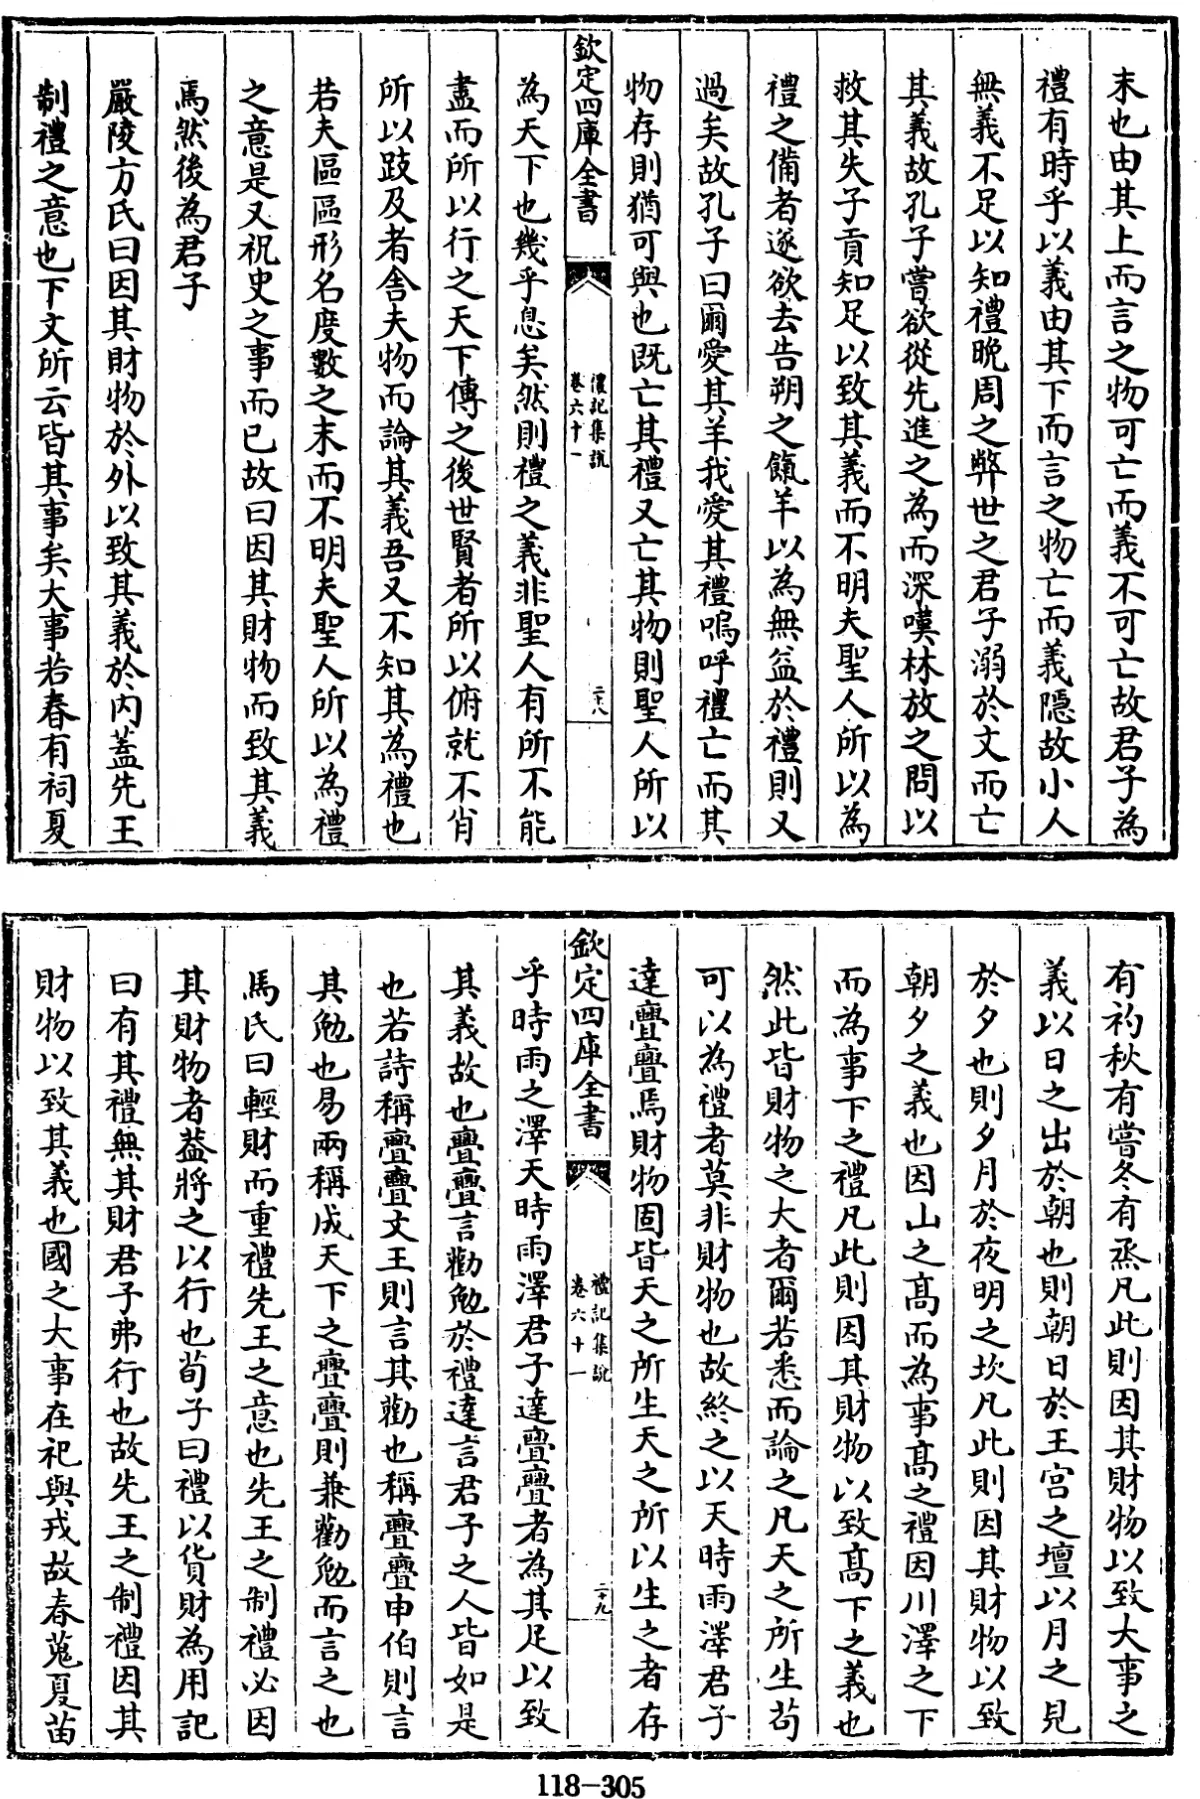 末也由其上而言之物可亡而義不可亡故君子為
禮有時乎以義由其下而言之物亡而義隱故小人
無義不足以知禮晚周之弊世之君子溺於文而亡
其義故孔子嘗欲從先進之為而深嘆林放之問以
救其失子貢知足以致其義而不明夫聖人所以為
禮之備者遂欲去告朔之餼羊以為無益於禮則又
過矣故孔子曰爾愛其羊我愛其禮嗚呼禮亡而其
物存則猶可與也既亡其禮又亡其物則聖人所以
欽定四庫全書
禮記集說
卷六十一
二十八
為天下也幾乎息矣然則禮之義非聖人有所不能
盡而所以行之天下傳之後世賢者所以俯就不肖
所以跂及者舍夫物而論其義吾又不知其為禮也
若夫區區形名度數之末而不明夫聖人所以為禮
之意是又祝史之事而已故曰因其財物而致其義
焉然後為君子
嚴陵方氏曰因其財物於外以致其義於内蓋先王
制禮之意也下文所云皆其事矣大事若春有祠夏
有礿秋有嘗冬有烝凡此則因其財物以致大事之
義以日之出於朝也則朝日於王宮之壇以月之見
於夕也則夕月於夜明之坎凡此則因其財物以致
朝夕之義也因山之髙而為事髙之禮因川澤之下
而為事下之禮凡此則因其財物以致髙下之義也
然此皆財物之大者爾若悉而論之凡天之所生茍
可以為禮者莫非財物也故終之以天時雨澤君子
達亹亹焉財物固皆天之所生天之所以生之者存
欽定四庫全書
禮記集說
卷六十一
二十九
乎時雨之澤天時雨澤君子達亹亹者為其足以致
其義故也亹亹言勸勉於禮達言君子之人皆如是
也若詩稱亹亹文王則言其勸也稱亹亹申伯則言
其勉也易兩稱成天下之亹亹則兼勸勉而言之也
馬氏曰輕財而重禮先王之意也先王之制禮必因
其財物者葢將之以行也荀子曰禮以貨財為用記
曰有其禮無其財君子弗行也故先王之制禮因其
財物以致其義也國之大事在祀與戎故春蒐夏苗
118-305